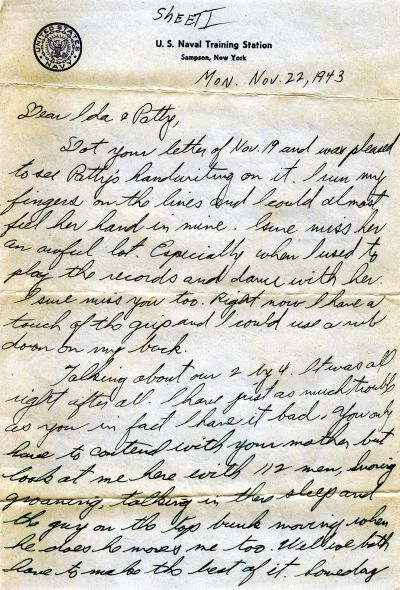 SHEET I
UNITED STATES
NAVY
U. S. Naval Training Station
Sampson, New York
Mon. Nov. 22, 1943
Dear Ida & Patty,
Got your letter of Nov. 19 and was pleased
to see Patty's handwriting on it. I run my
fingers on the lines and I could almost
feel her hand in mine. I sure miss her
an awful lot. Especially when I used to
play the records and dance with her.
I sure miss you too. Right now I have a
touch of the grip and I could use a rub
down on my back.
Talking about our 2 by 4. It was all
right after all. I have just as much trouble
as you in fact I have it bad. You only
have to contend with your mother but
look at me here with 112 men, snoring
groaning, talking in their sleep and
the guy on the top bunk moving when
he does he moves me too. Well we both
have to make the best of it. Someday